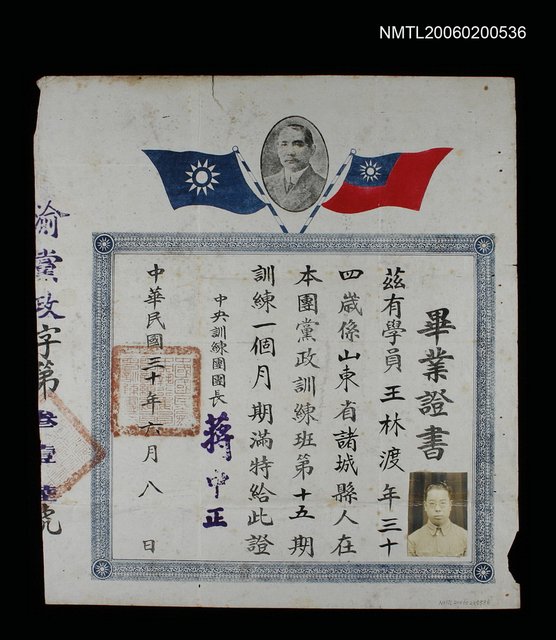 NMTL20060200536
畢業證書
茲有學員王林渡年三十
四歲係山東省諸城縣人在
本團黨政訓練班第十五期
訓練一個月期滿特給此證
中央訓練團團長 蔣中正
中華民國三十年六月八日
渝黨政字第叁壹號
NMTL20060200536